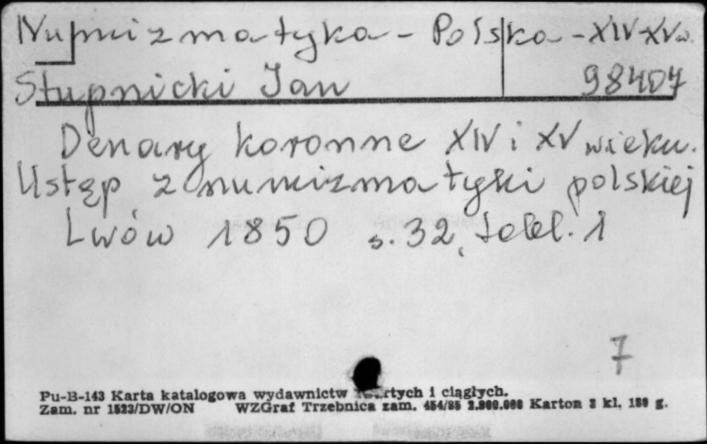 Numizmatyka - Polska - XIV-XV w.
Stupnicki Jan 98407
Denary koronne XIV i XV wieku.
Ustęp z numizmatyki polskiej
Lwów 1850 s. 32, tabl. 1
7
Pu-B-143 Karta katalogowa wydawnictw zwartych i ciągłych.
Zam. nr 1523/DW/ON WZGraf Trzebnica zam. 454/85 2.900.000 Karton 3 kl. 180 g.